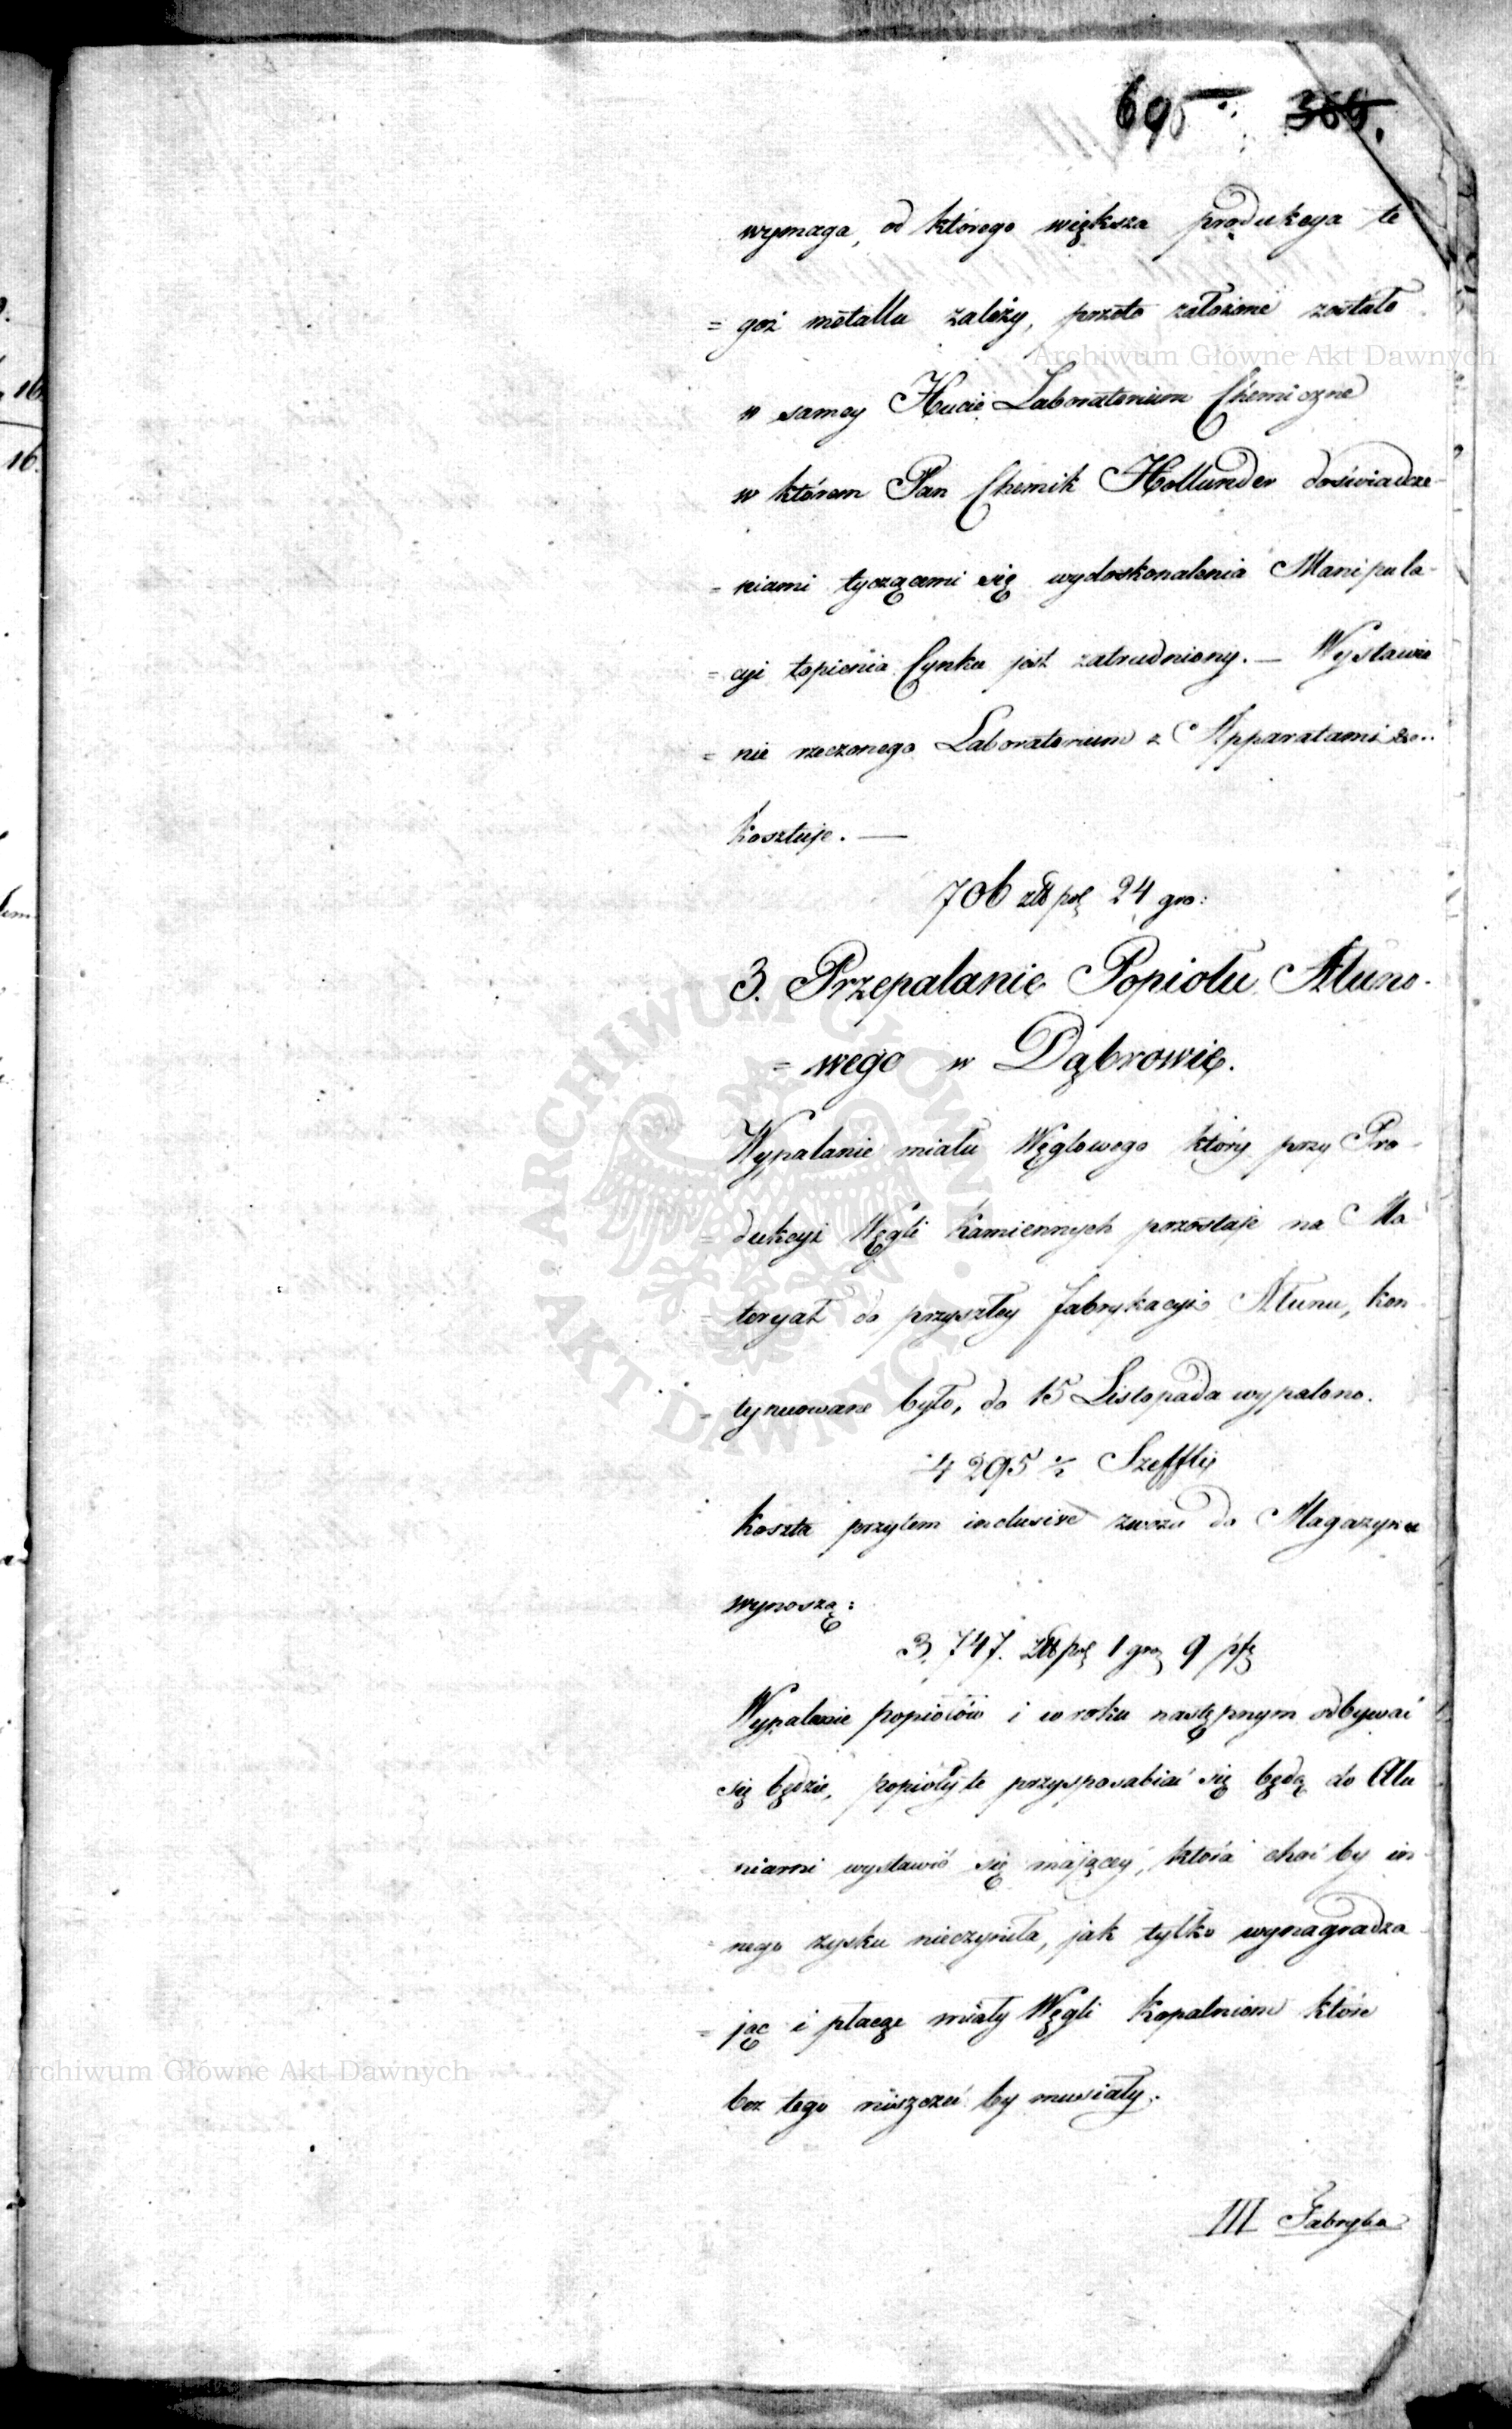 695. 366.
wymaga, od którego większa produkcya te
= goż metallu zależy, przeto założone zostało
w samey Hucie Laboratorium Chemiczne
w którem Pan Chemik Hollunder doświadcze-
= niami tyczącemi się wydoskonalenia Manipula-
= cyi topienia Cynku jest zatrudniony. — Wystawie
= nie rzeczonego Laboratorium z Apparatami &c..
kosztuje. —
706 złł pol 24 gro:
3. Przepalanie Popiołu Ałuno-
= wego w Dąbrowie.
Wypalanie miału Węglowego który przy Pro-
= dukcyi Węgli Kamiennych pozostaje na Ma
= teryał do przyszłey fabrykacyi Ałunu, kon
= tynuowane było, do 15 Listopada wypalono.
4295 ½ Szeffli
koszta przytem inclusive zwozu do Magazynu
wynoszą:
3,747. złł pol 1 gro 9 pfg
Wypalanie popiołów i w roku następnym odbywać
się będzie, popioły te przysposabiać się będą do Ału
niarni wystawić się mającey, która choć by in-
= nego zysku nieczyniła, jak tylko wynagradza
= jąc i płacąc miały Węgli Kopalniom które
bez tego niszczeć by musiały.
III Fabryka
Archiwum Główne Akt Dawnych
ARCHIWUM GŁÓWNE · AKT DAWNYCH ·
Archiwum Główne Akt Dawnych